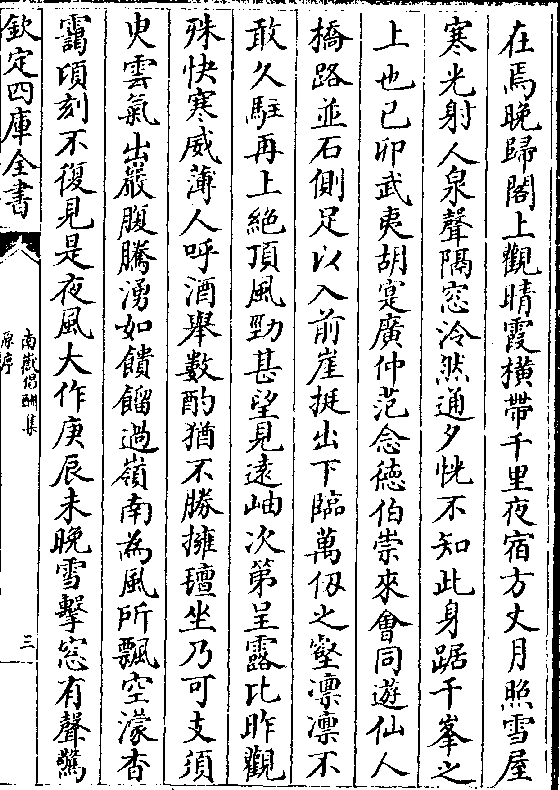 在焉晚歸閣上觀晴霞橫帶千里夜宿方丈月照雪屋
寒光射人泉聲隔窓泠然通夕恍不知此身踞千峯之
上也己卯武夷胡寔廣仲范念徳伯崇來會同遊仙人
橋路並石側足以入前崖挺出下臨萬仭之壑凛凛不
敢久駐再上絶頂風勁甚望見遠岫次第呈露比昨觀
殊快寒威薄人呼酒舉數酌猶不勝擁氊坐乃可支須
㬰雲氣出巖腹騰湧如饙餾過嶺南為風所飄空濛杳
靄頃刻不復見是夜風大作庚辰未晚雪擊窓有聲驚
欽定四庫全書
南嶽倡酬集
原序
三